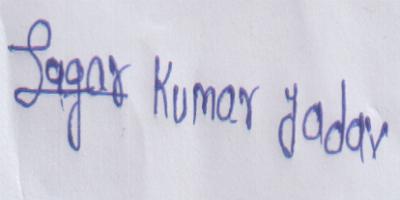 Sagar Kumar Yadav